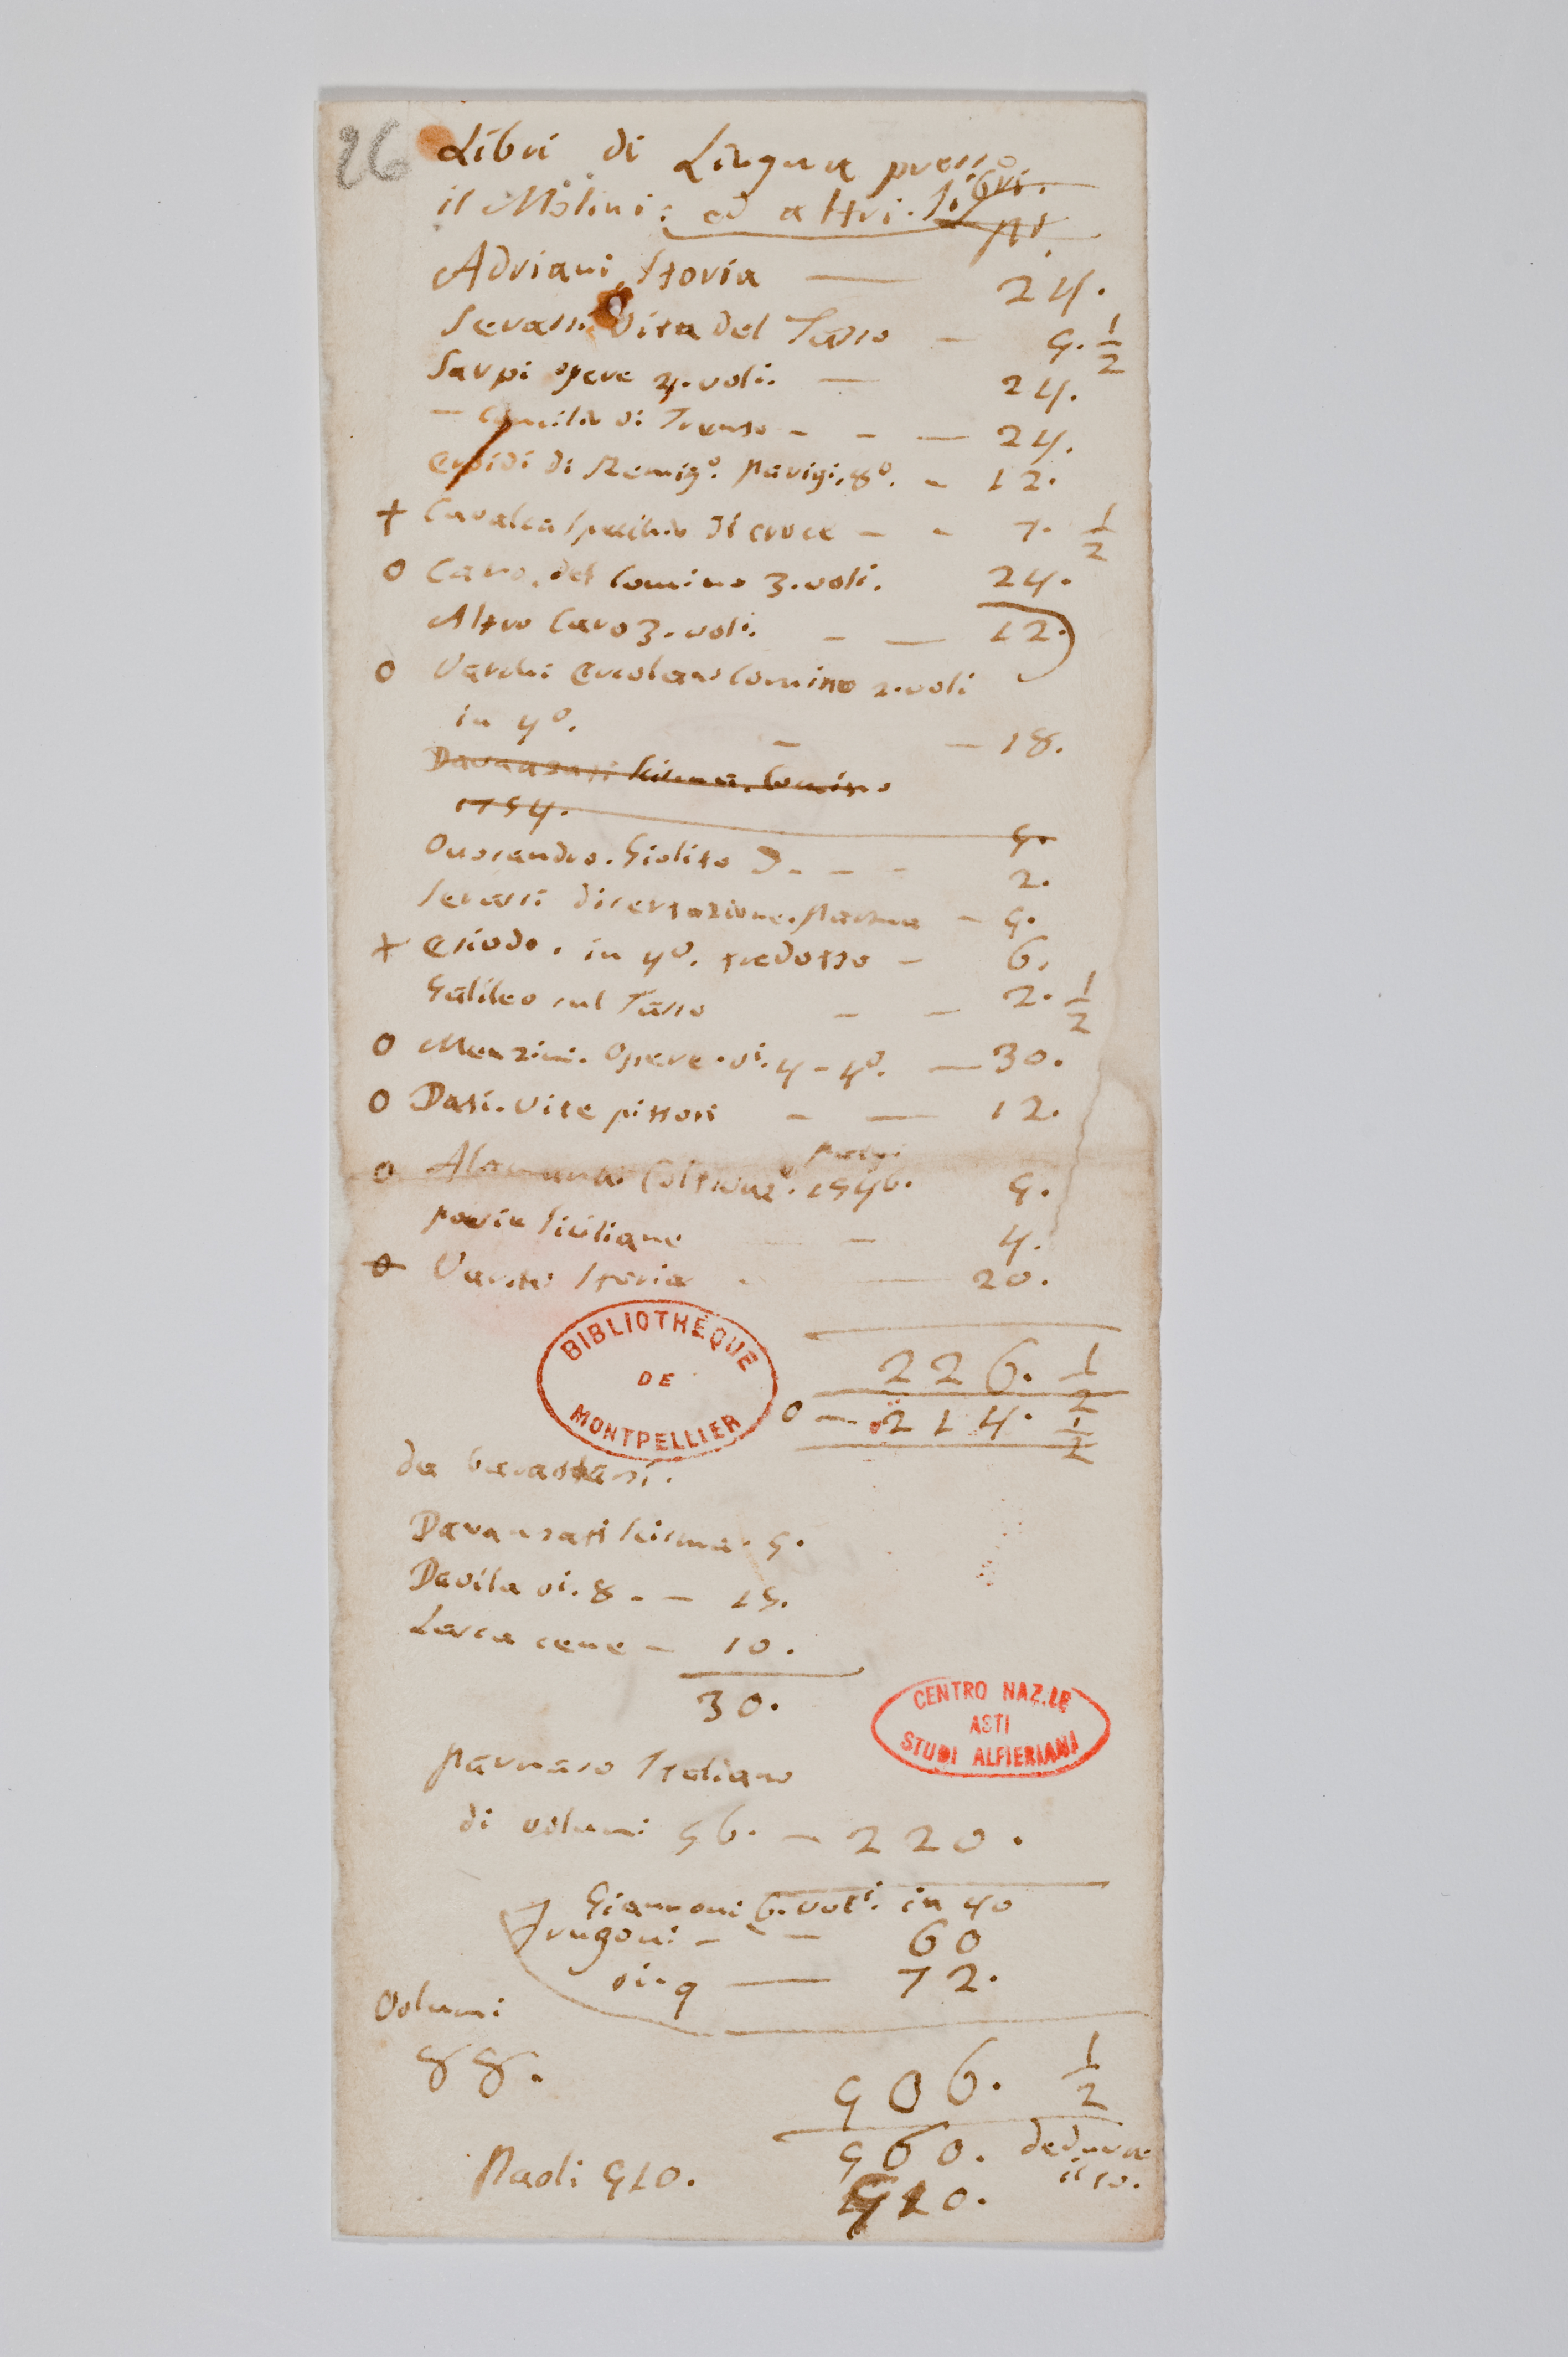 26
Libri di Lingua presso
il Molini: ed altri. libri.
Adriani, Storia — 24.
Serassi Vita del Tasso — 5. 1/2
Sarpi opere 4. voli. — 24.
— Concilio di Trento — — — 24.
Epidi di Remig°. Parigi. 8°. — 12.
+ Cavalca specchio di croce — — 7. 1/2
O Caro. del Comino 3. voli. 24.
Altro Caro 3. voli. — — 12.
O Varchi Ercolano Comino 2. voli
in 4°. — — 18.
Davanzati Scisma. Comino
1754. 5.
Ovosandro. Giolito — — — 2.
Serassi disertazione. Parma — 5.
+ Esiodo. in 4°. tradotto — 6.
Galileo sul Tasso — — 2. 1/2
O Menzini. Opere. vi. 4 - 4°. — 30.
O Dati. Vite pittori — — 12.
Parigi
O Alamanni Coltivaze. 1546. 5.
poesie siciliane — 4.
O Varchi Storia — 20.
226. 1/2
O — 214. 1/2
BIBLIOTHÈQUE
DE
MONTPELLIER
da
Davanzati Scisma. 5.
Davila vi. 8 — — 15.
Lasca cene — 10.
30.
CENTRO NAZ.LE
ASTI
STUDI ALFIERIANI
Parnaso Italiano
di volumi 56. — 220.
Giannoni 6. voli. in 4o
Frugoni — — 60
vi. 9 — 72.
Volumi
88.
506. 1/2
560. dedurre
il 10.
Paoli 510. 510.